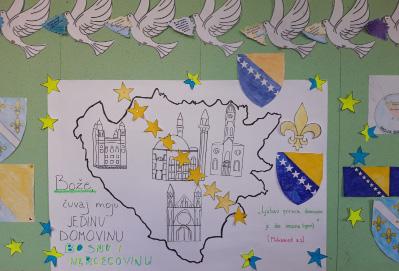 Bože,
čuvaj moju
JEDINU
DOMOVINU
BOSNU I
HERCEGOVINU
„Ljubav prema domovini
je dio imana
(Muhammed a.s.)